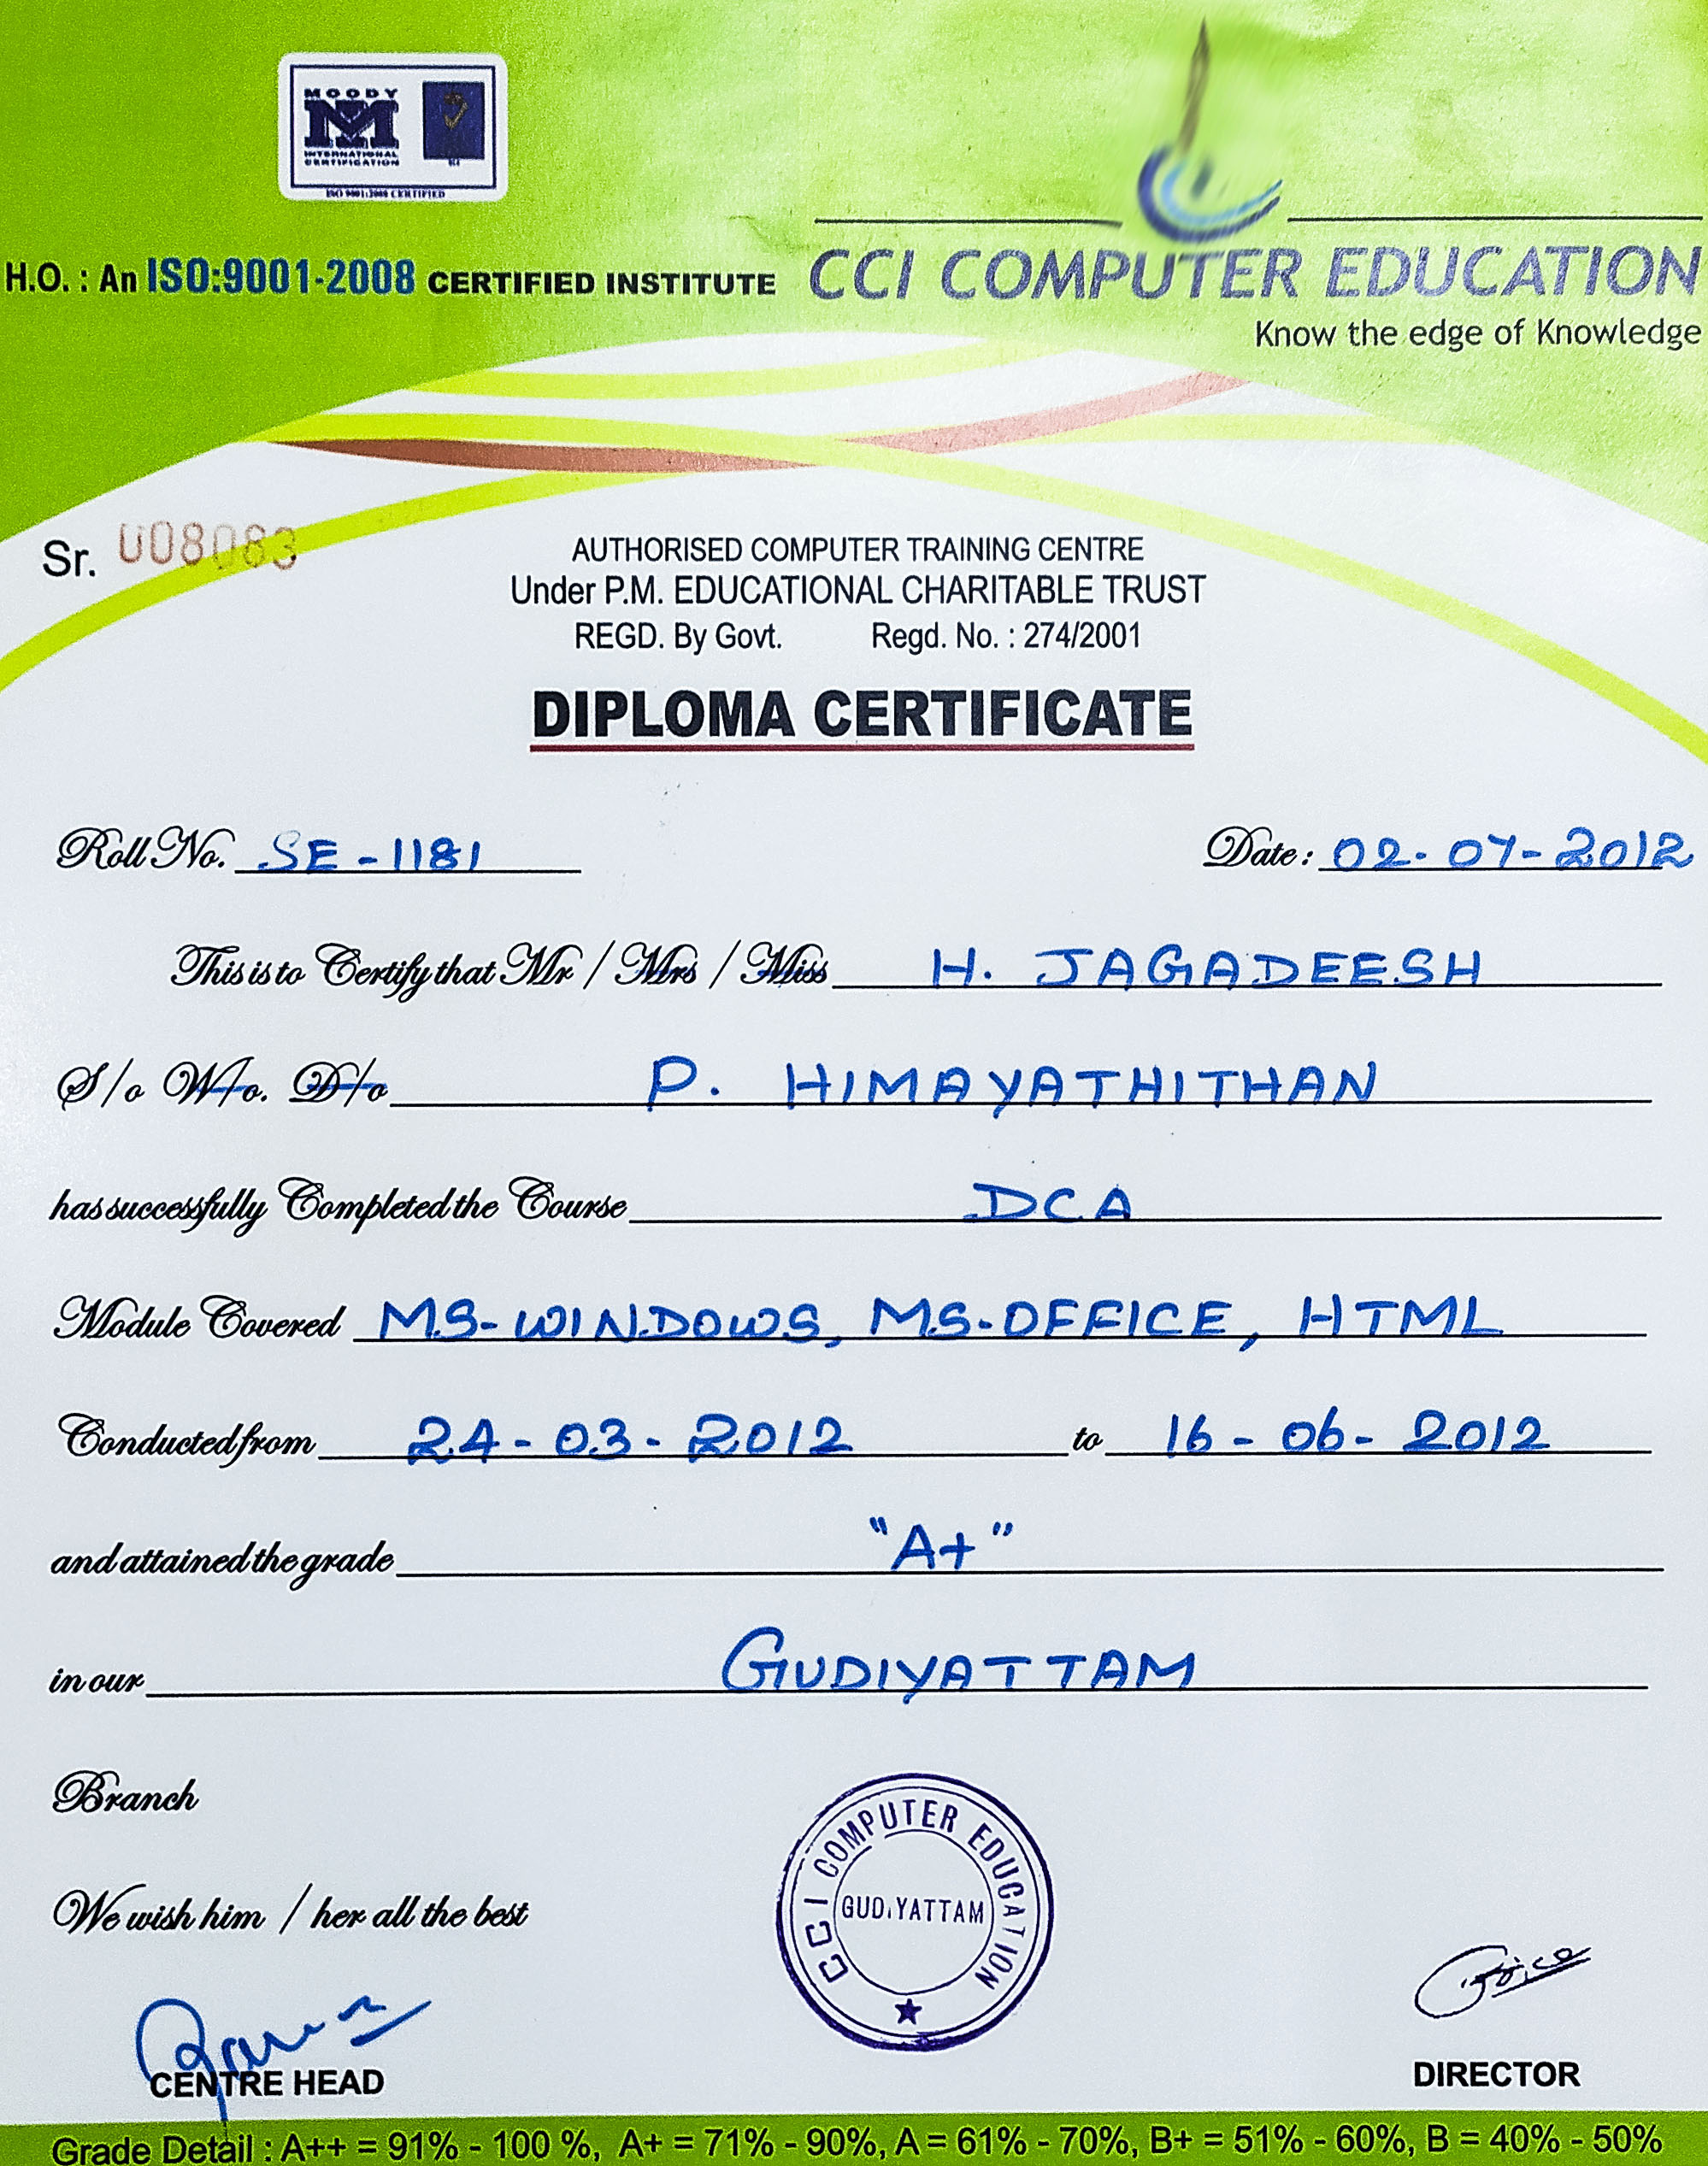 MOODY
INTERNATIONAL
CERTIFICATION
ISO 9001:2008 CERTIFIED
H.O. : An ISO:9001-2008 CERTIFIED INSTITUTE
CCI COMPUTER EDUCATION
Know the edge of Knowledge
Sr. 008083
AUTHORISED COMPUTER TRAINING CENTRE
Under P.M. EDUCATIONAL CHARITABLE TRUST
REGD. By Govt. Regd. No. : 274/2001
DIPLOMA CERTIFICATE
Roll No. SE-1181 Date: 02-07-2012
This is to Certify that Mr / Mrs / Miss H. JAGADEESH
S/o W/o. D/o P. HIMAYATHITHAN
has successfully Completed the Course DCA
Module Covered MS-WINDOWS, MS-OFFICE, HTML
Conducted from 24-03-2012 to 16-06-2012
and attained the grade "A+"
in our GUDIYATTAM
Branch
We wish him / her all the best
CCI COMPUTER EDUCATION
GUDIYATTAM
CENTRE HEAD DIRECTOR
Grade Detail : A++ = 91% - 100 %, A+ = 71% - 90%, A = 61% - 70%, B+ = 51% - 60%, B = 40% - 50%